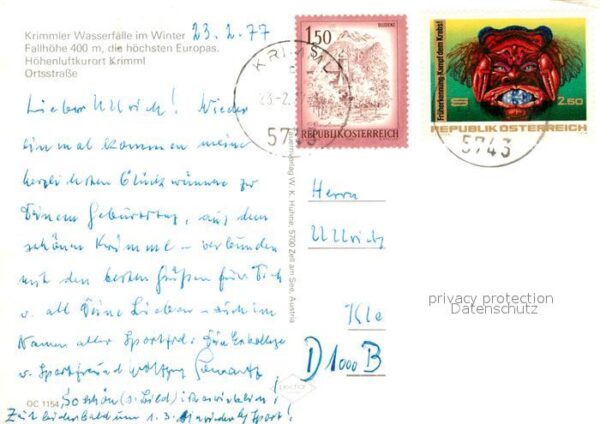 Krimmler Wasserfälle im Winter 23.2.77
Fallhöhe 400 m, die höchsten Europas.
Höhenluftkurort Krimml
Ortsstraße
Lieber Ullrich! Wieder
einmal kommen meine
herzlichsten Glückwünsche zu
Deinem Geburtstag, aus dem
schönen Krimml – verbunden
mit den besten Grüßen für Dich
u. all Deine Lieben – auch im
Namen aller Sportfrd. Dein
u. Sportfreund Wolfgang
So schön (s. Bild) ist
Zeit leider bald um 1.3. wieder Sport!
OC 1154
Buchverlag W. K. Hühne, 5700 Zell am See, Austria
1.50
BLUDENZ
REPUBLIK ÖSTERREICH
KRIMML
23.-2.77
5743
Früherkennung. Kampf dem Krebs!
S 2.60
REPUBLIK ÖSTERREICH
5743
Herrn
Ullrich
Kle
D 1000 B
privacy protection
Datenschutz